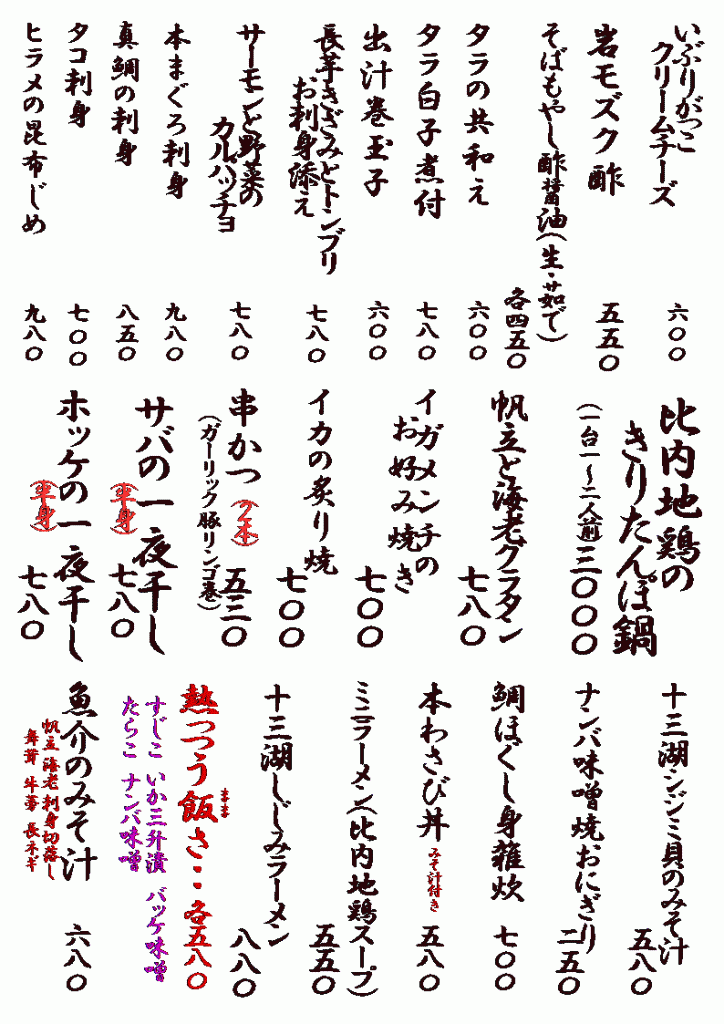 いぶりがっこ
クリームチーズ
六〇〇
岩モズク酢
五五〇
そばもやし酢醤油(生・茹で)
各四五〇
タラの共和え
六〇〇
タラ白子煮付
七八〇
出汁巻玉子
六〇〇
長芋きざみとトンブリ
お刺身添え
七八〇
サーモンと野菜の
カルパッチョ
七八〇
本まぐろ刺身
九八〇
真鯛の刺身
八五〇
タコ刺身
七〇〇
ヒラメの昆布じめ
九八〇
比内地鶏の
きりたんぽ鍋
(一台一～二人前)三〇〇〇
帆立と海老グラタン
七八〇
イガメンチの
お好み焼き
七〇〇
イカの炙り焼
七〇〇
串かつ(2本)
(ガーリック豚リンゴ巻)
五三〇
サバの一夜干し
(半身)
七八〇
ホッケの一夜干し
(半身)
七八〇
十三湖シジミ貝のみそ汁
五八〇
ナンバ味噌焼おにぎり
二五〇
鯛ほぐし身雑炊
七〇〇
本わさび丼
みそ汁付き
五八〇
ミニラーメン(比内地鶏スープ)
五五〇
十三湖しじみラーメン
八八〇
熱っつう飯さ・・各五八〇
まま
すじこ いか三升漬 バッケ味噌
たらこ ナンバ味噌
魚介のみそ汁
帆立 海老 刺身切落し
舞茸 牛蒡 長ネギ
六八〇